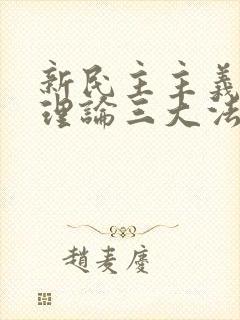 新民主主義
理論三大法
趙麦慶